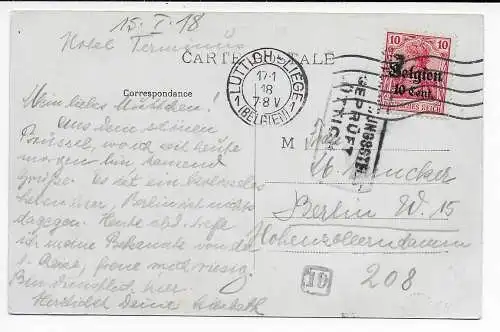 15. I. 18
Hotel Terminus
CARTE POSTALE
Correspondance
LÜTTICH-LIÈGE
17·1
18
7-8 V
(BELGIEN)
10 10
Belgien
10 Cent.
DEUTSCHES REICH
GEPRÜFT
LÜTTICH
Mein liebes
Aus dem schönen
Brüssel, wo ich seit heute
morgen bin tausend
Grüße. Es ist ein kolossales
Leben hier, Berlin ist nichts
dagegen. Heute abd. treffe
ich meine Bekannte von der
Reise, freue mich riesig.
Bin hier.
Herzlichst Deine
Berlin W. 15
Hohenzollerndamm
208
10